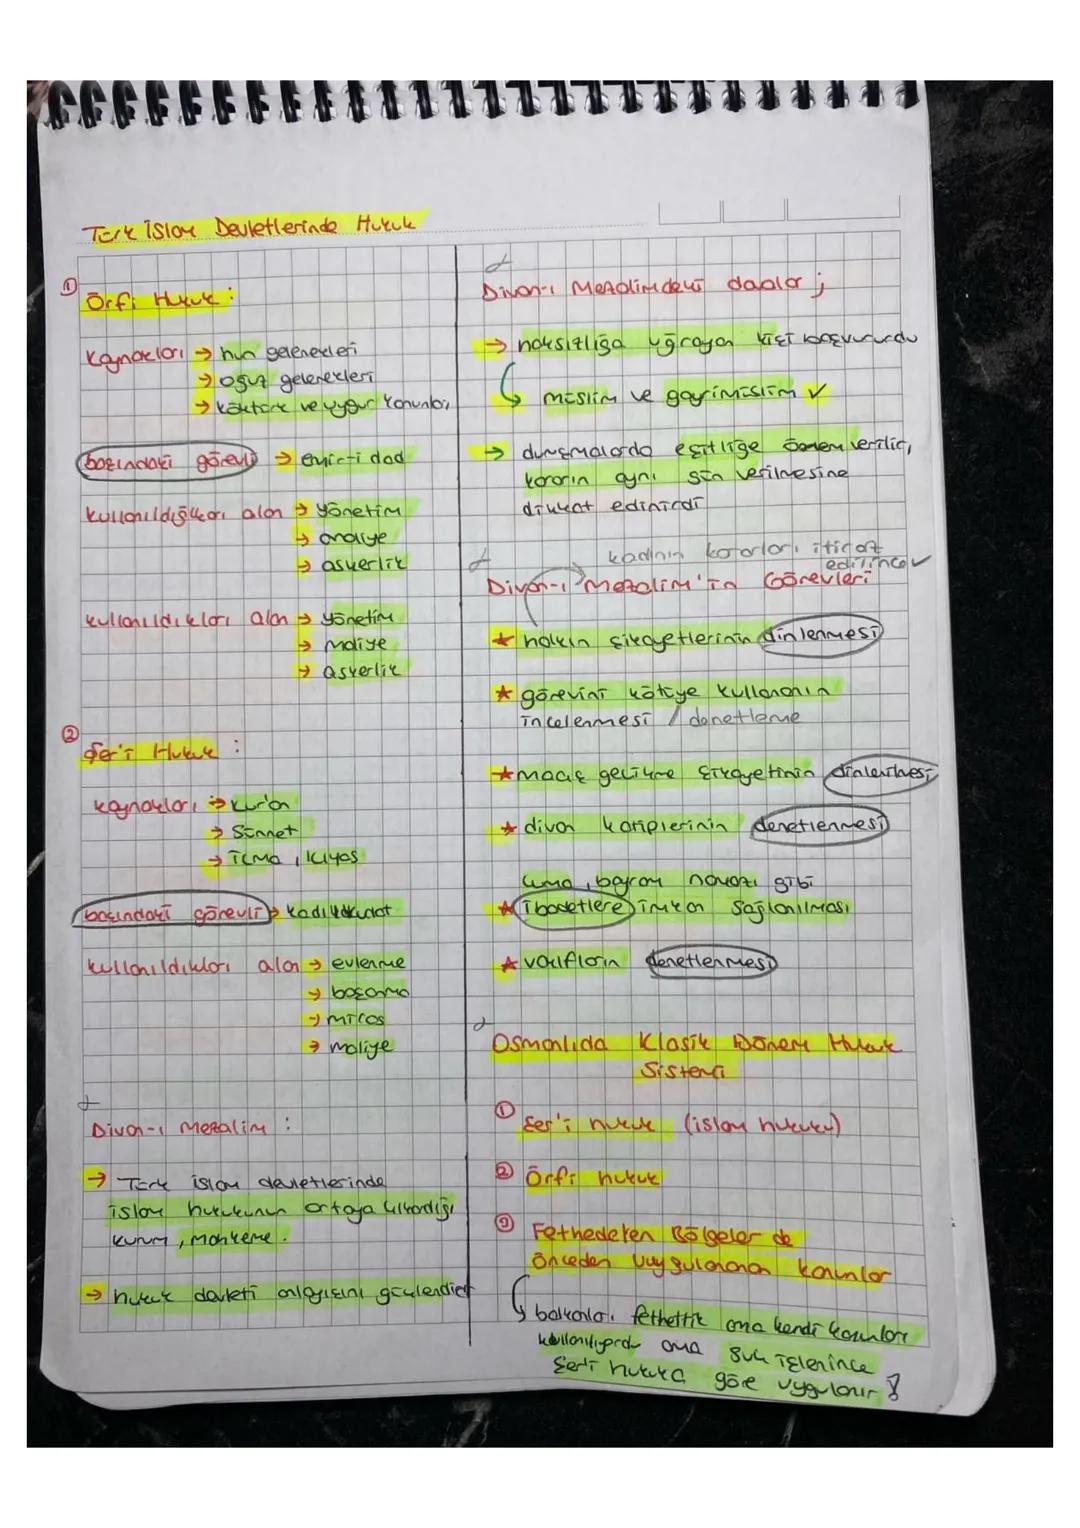 Türk İslam Devletlerinde Hukuk
① Örfi Hukuk :
Kaynakları → hun gelenekleri
→ oğuz gelenekleri
→ köktürk ve uygur kanunları
başındaki görevli → emir-i dad
kullanıldığı alan → yönetim
→ maliye
→ askerlik
kullanıldıkları alan → yönetim
→ maliye
→ askerlik
② Şer'i Hukuk :
kaynakları → kur'an
→ Sünnet
→ icma, kıyas
başındaki görevli → kadı
kullanıldıkları alan → evlenme
→ boşanma
→ miras
→ maliye
Divan-ı Mezalim :
→ Türk islam devletlerinde
islam hukukunun ortaya çıkardığı
kurum, mahkeme.
→ hukuk devleti anlayışını güçlendirir
Divan-ı Mezalimdeki davalar ;
→ haksızlığa uğrayan kişi başvururdu
↳ müslim ve gayrimüslim ✓
→ duruşmalarda eşitliğe önem verilir,
kararın aynı gün verilmesine
dikkat edinirdi
kadının kararları itiraz
edilince ✓
Divan-ı Mezalim'in Görevleri
★ halkın şikayetlerinin dinlenmesi
★ görevini kötüye kullananın
incelenmesi / denetleme
★ maaş gecikme şikayetinin dinlenilmesi
★ divan katiplerinin denetlenmesi
Cuma, bayram namazı gibi
★ ibadetlere imkan sağlanılması
★ vakıfların denetlenmesi
Osmanlıda Klasik Dönem Hukuk
Sistemi
① Şer'i hukuk (islam hukuku)
② Örfi hukuk
③ Fethedilen Bölgeler de
Önceden Uygulanan kanunlar
↳ balkanları fethettik ama kendi kanunları
kullanılıyordu ama suç işlenince
Şer'i hukuka göre uygulanır !